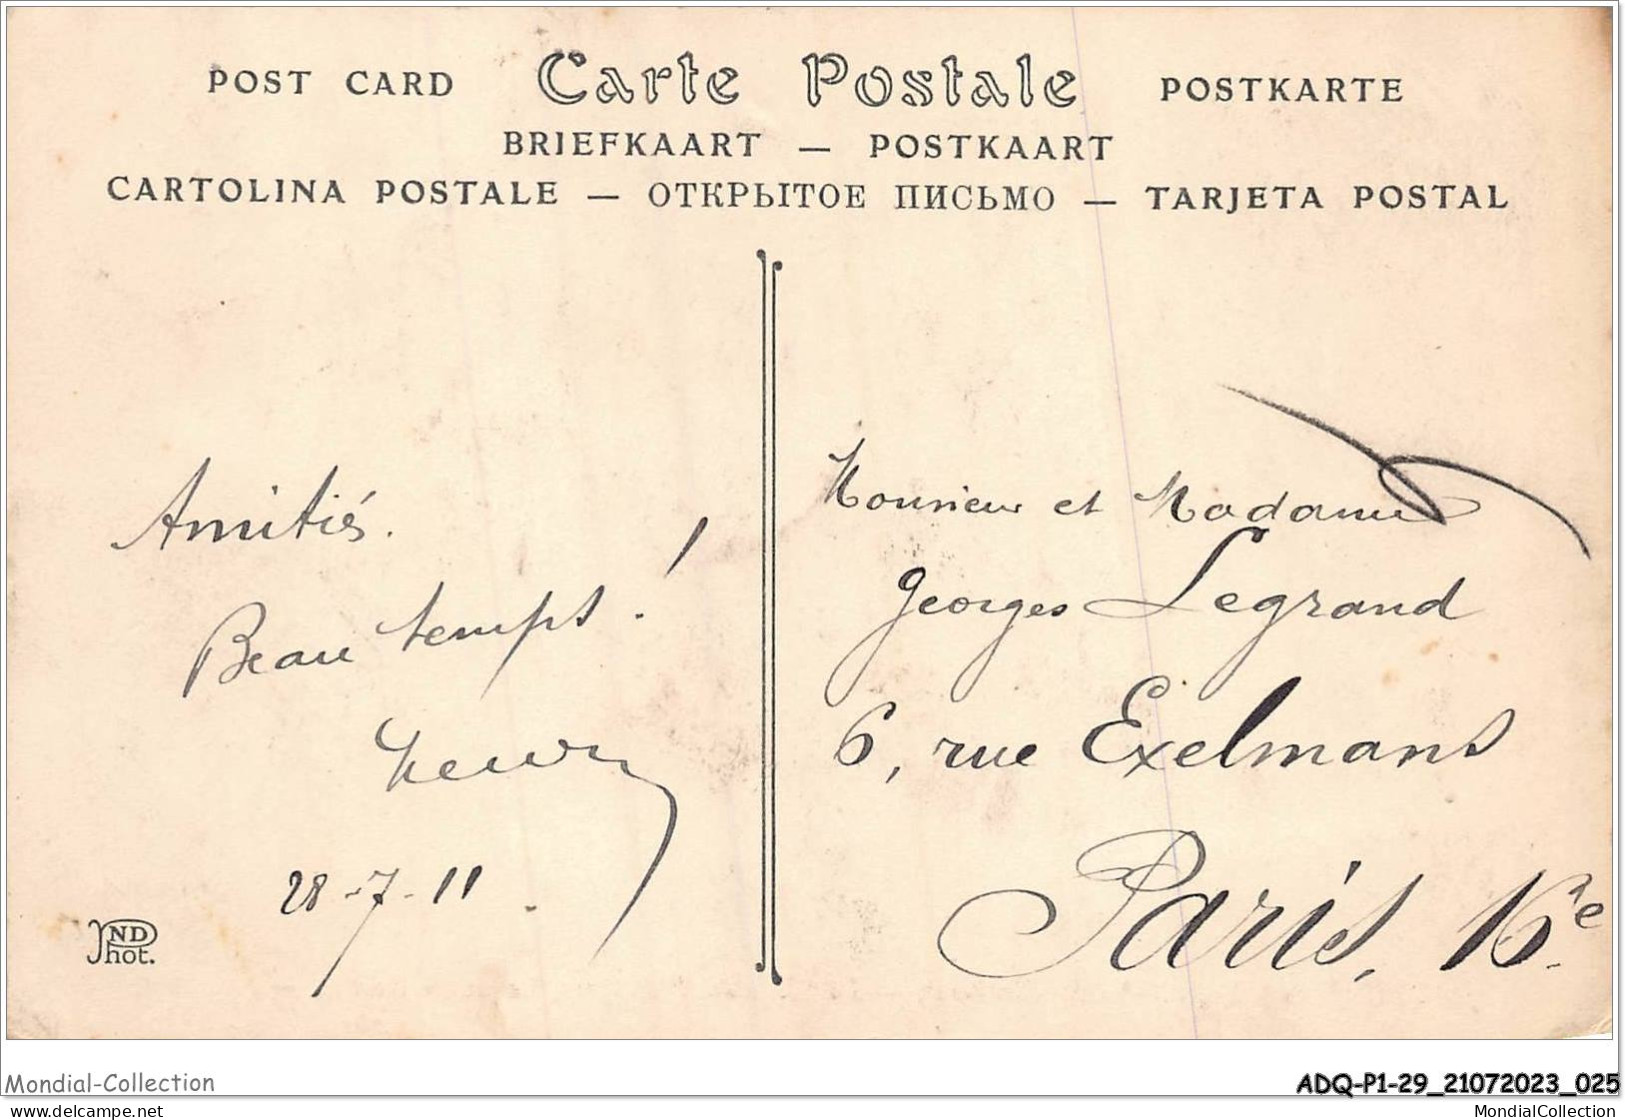 POST CARD Carte Postale POSTKARTE
BRIEFKAART — POSTKAART
CARTOLINA POSTALE — ОТКРЫТОЕ ПИСЬМО — TARJETA POSTAL
Amitiés.
Beau temps !
Henry
28-7-11
ND
Phot.
Monsieur et Madame
Georges Legrand
6, rue Exelmans
Paris, 16e
Mondial-Collection
ADQ-P1-29_21072023_025
www.delcampe.net
MondialCollection